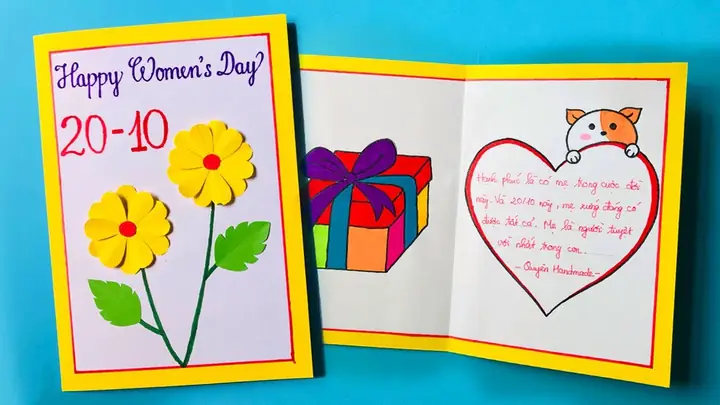 Happy Women's Day
20-10
Hạnh phúc là có mẹ trong cuộc đời
này. Và 20/10 này, mẹ xứng đáng có
được tất cả. Mẹ là người tuyệt
vời nhất trong con......
- Quyên Handmade -